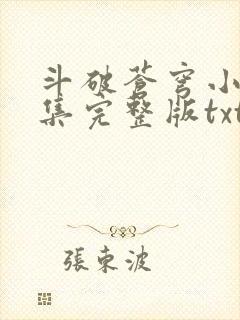 斗破苍穹小
集完整版txt
張東波